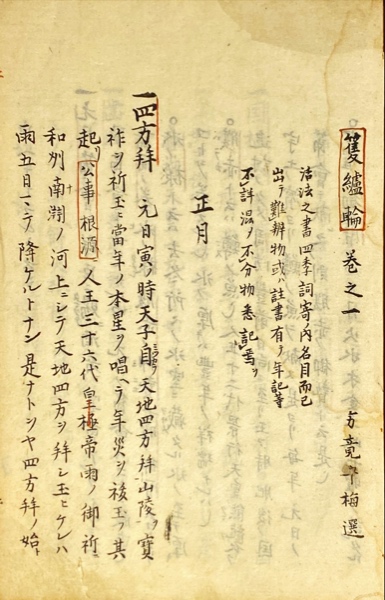 篗纑輪 巻之一
方竟千梅選
法法之書四季詞寄ノ内名目而已
出テ難辨物或ハ註書有テ年記等
不詳混メ不分物悉記焉ヲ
正月
一四方拜 元日寅ノ時天子自ラ天地四方拜山陵ヲ寶
祚ヲ祈玉ニ當年ノ本星ヲ唱ヘテ年災ヲ祓玉フ其
起ハ公事根源人王三十六代皇極帝雨ノ御祈
和州南渕ノ河上ニシテ天地四方ヲ拜シ玉ヒケレハ
雨五日マテ降ケルトナン是ナトシヤ四方拜ノ始